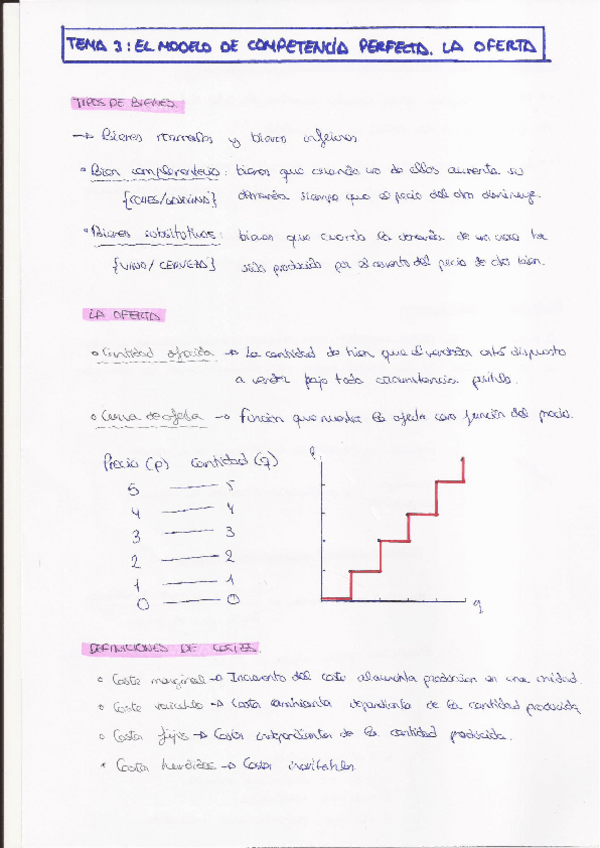 TEMA 3: EL MODELO DE COMPETENCIA PERFECTA. LA OFERTA
TIPOS DE BIENES
→ Bienes normales y bienes inferiores
• Bien complementario: bienes que cuando uno de ellos aumenta su
{COCHES/GASOLINA} demanda siempre que el precio del otro disminuye.
• Bienes substitutivos: bienes que cuando la demanda de un
{VINO/ CERVEZA} sido producida por el aumento del precio de otro bien.
LA OFERTA
• Cantidad ofrecida → La cantidad de bien que el vendedor está dispuesto
a vender bajo toda circunstancia posible.
• Curva de oferta → Función que muestra la oferta como función del precio.
Precio (p) Cantidad (q)
5 — 5
4 — 4
3 — 3
2 — 2
1 — 1
0 — 0
P
q
DEFINICIONES DE COSTES
• Coste marginal → Incremento del coste al aumentar producción en una unidad.
• Coste variable → Costa dependiente de la cantidad producida
• Costa fijos → Costes independientes de la cantidad producida.
• Costa hundidos → Costa inevitables